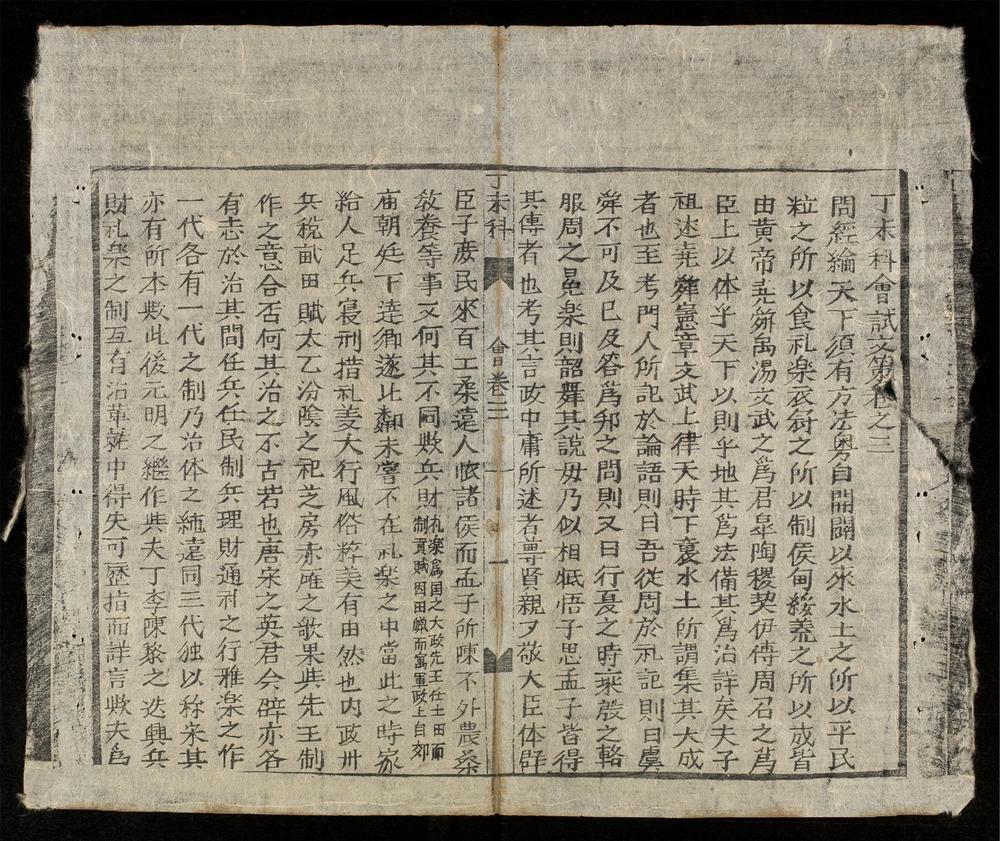 丁未科會試文第卷之三
問經綸天下須有方法粤自開闢以來水土之所以平民
粒之所以食礼楽衣冠之所以制侯甸綏羌之所以成皆
由黄帝尭舜禹湯文武之爲君皐陶稷契伊傅周召之爲
臣上以体乎天下以則乎地其爲法備其爲治詳矣夫子
祖述尭舜憲章文武上律天時下襲水土所謂集其大成
者也至考門人所記於論語則曰吾従周於礼記則曰虞
舜不可及已及答爲邦之問則又曰行夏之時乘殷之輅
服周之冕楽則韶舞其説毋乃似相牴悟子思孟子皆得
其傳者也考其言政中庸所述者尊賢親親敬大臣体群
丁未科 會卷三 一
臣子庶民來百工柔遠人懐諸侯而孟子所陳不外農桑
敘養等事又何其不同歟兵財礼楽爲国之大政先王任土田而制貢賦因田賦而寓軍政上自郊
庙朝廷下逹卿遂比鄰未嘗不在礼楽之中當此之時家
給人足兵寝刑措礼羙大行風俗粹美有由然也内政卅
兵稅畝田賦太乙汾陰之祀芝房赤雁之歌果与先王制
作之意合否何其治之不古若也唐宋之英君令辟亦各
有志於治其間任兵任民制兵理財通礼之行雅楽之作
一代各有一代之制乃治体之純遠同三代独以称宋其
亦有所本歟此後元明之継作与夫丁李陳黎之迭興兵
財礼楽之制互有沿革就中得失可歴指而詳言歟夫爲